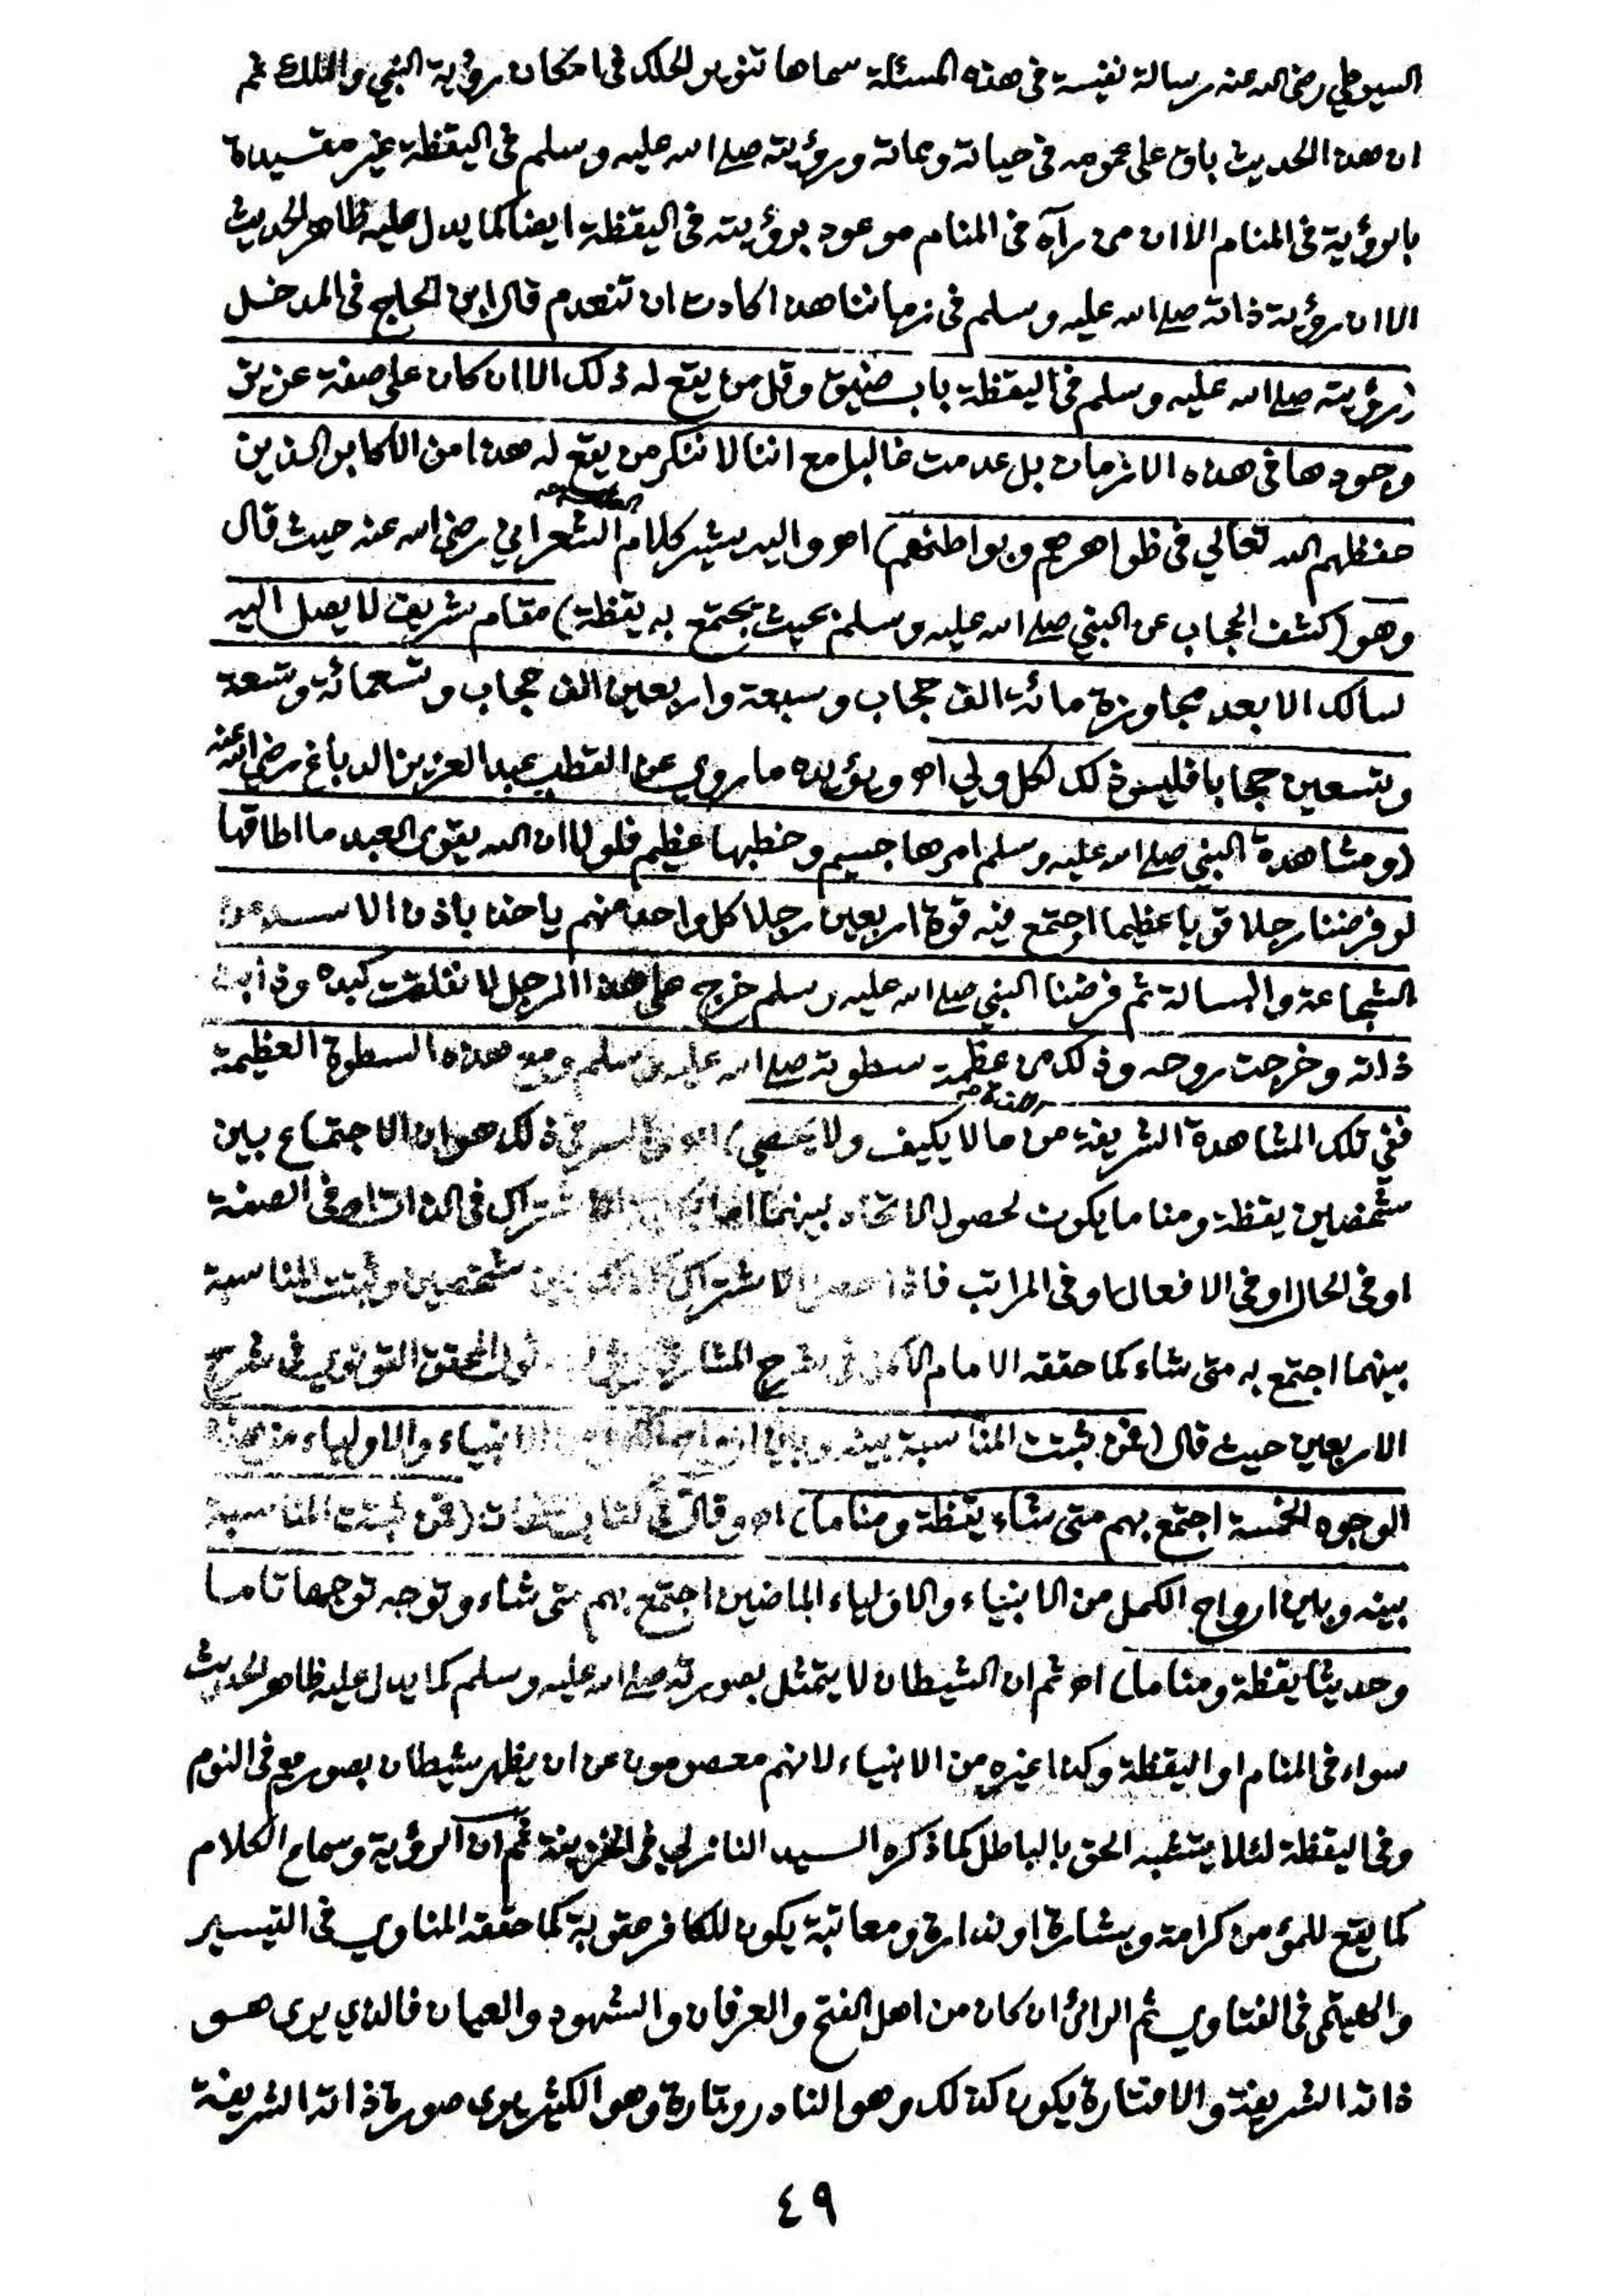 السيوطي رضى الله عنه رسالة نفيسة فى هذه المسئلة سماها تنوير الحلك فى امكان رؤية النبي والملك ثم
ان هذا الحديث باق على عمومه فى حياته ومماته ورؤيته صلى الله عليه وسلم فى اليقظة غير مقيدة
بالرؤية فى المنام الا ان من رآه فى المنام موعود برؤيته فى اليقظة ايضا كما يدل عليه ظاهر الحديث
الا ان رؤية ذاته صلى الله عليه وسلم فى زماننا هذا كادت ان تنعدم قال ابن الحاج فى المدخل
(رؤيته صلى الله عليه وسلم فى اليقظة باب ضيق وقل من يقع له ذلك الا ان كان على صفة عزيز
وجودها فى هذه الازمان بل عدمت غالبا مع اننا لا ننكر من يقع له هذا من الاكابر الذين
حفظهم الله تعالي فى ظواهرهم وبواطنهم) اهـ واليه يشير كلام الشعراني رضى الله عنه حيث قال
وهو (كشف الحجاب عن النبي صلى الله عليه وسلم بحيث يجتمع به يقظة) مقام شريف لا يصل اليه
سالك الا بعد مجاوزة مائة الف حجاب وسبعة واربعين الف حجاب وتسعمائة وتسعة
وتسعين حجابا فليس ذلك لكل ولي اهـ ويؤيده ما روي عن القطب عبد العزيز الدباغ رضى الله عنه
(ومشاهدة النبي صلى الله عليه وسلم امرها جسيم وخطبها عظيم فلولا ان الله يقوى العبد ما اطاقها
لو فرضنا رجلا قويا عظيما اجتمع فيه قوة اربعين رجلا كل واحد منهم ياخذ باذن الاسد من
الشجاعة والبسالة ثم فرضنا النبي صلى الله عليه وسلم خرج على هذا الرجل لانفلقت كبده وذابت
ذاته وخرجت روحه وذلك من عظمة سطوته صلى الله عليه وسلم ومع هذه السطوة العظيمة
ففي تلك المشاهدة الشريفة من ما لا يكيف ولا يحصي) اهـ السر فى ذلك هو ان الاجتماع بين
شخصين يقظة ومناما يكون لحصول الاتحاد بينهما الاشتراك فى الذات او فى الصفة
او فى الحال او فى الافعال او فى المراتب فاذا حصل الاشتراك بين شخصين وثبتت المناسبة
بينهما اجتمع به متى شاء كما حققه الامام الاكمل فى شرح المشارق المحقق القونوي فى شرح
الاربعين حيث قال (فمن ثبتت المناسبة بينه وبين ارواح الانبياء والاولياء من هذه
الوجوه الخمسة اجتمع بهم متى شاء يقظة ومناما) اهـ وقال فى (فمن ثبتت المناسبة
بينه وبين ارواح الكمل من الانبياء والاولياء الماضين اجتمع بهم متى شاء وتوجه توجها تاما
وحديثا يقظة ومناما) اهـ ثم ان الشيطان لا يتمثل بصورته صلى الله عليه وسلم كما يدل عليه ظاهر الحديث
سواء فى المنام او اليقظة وكذا غيره من الانبياء لانهم معصومون عن ان يظهر شيطان بصورهم فى النوم
وفى اليقظة لئلا يتشبه الحق بالباطل كما ذكره السيد النازلي فى الخزينة ثم ان الرؤية وسماع الكلام
كما يقع للمؤمن كرامة وبشارة او نذارة ومعاتبة يكون للكافر عقوبة كما حققه المناوي فى التيسير
والهيتمى فى الفتاوي ثم الرائى ان كان من اهل الفتح والعرفان والشهود والعيان فالذي يرى هو
ذاته الشريفة والا فتارة يكون كذلك وهو النادر وتارة وهو الكثير يرى صورة ذاته الشريفة
٤٩